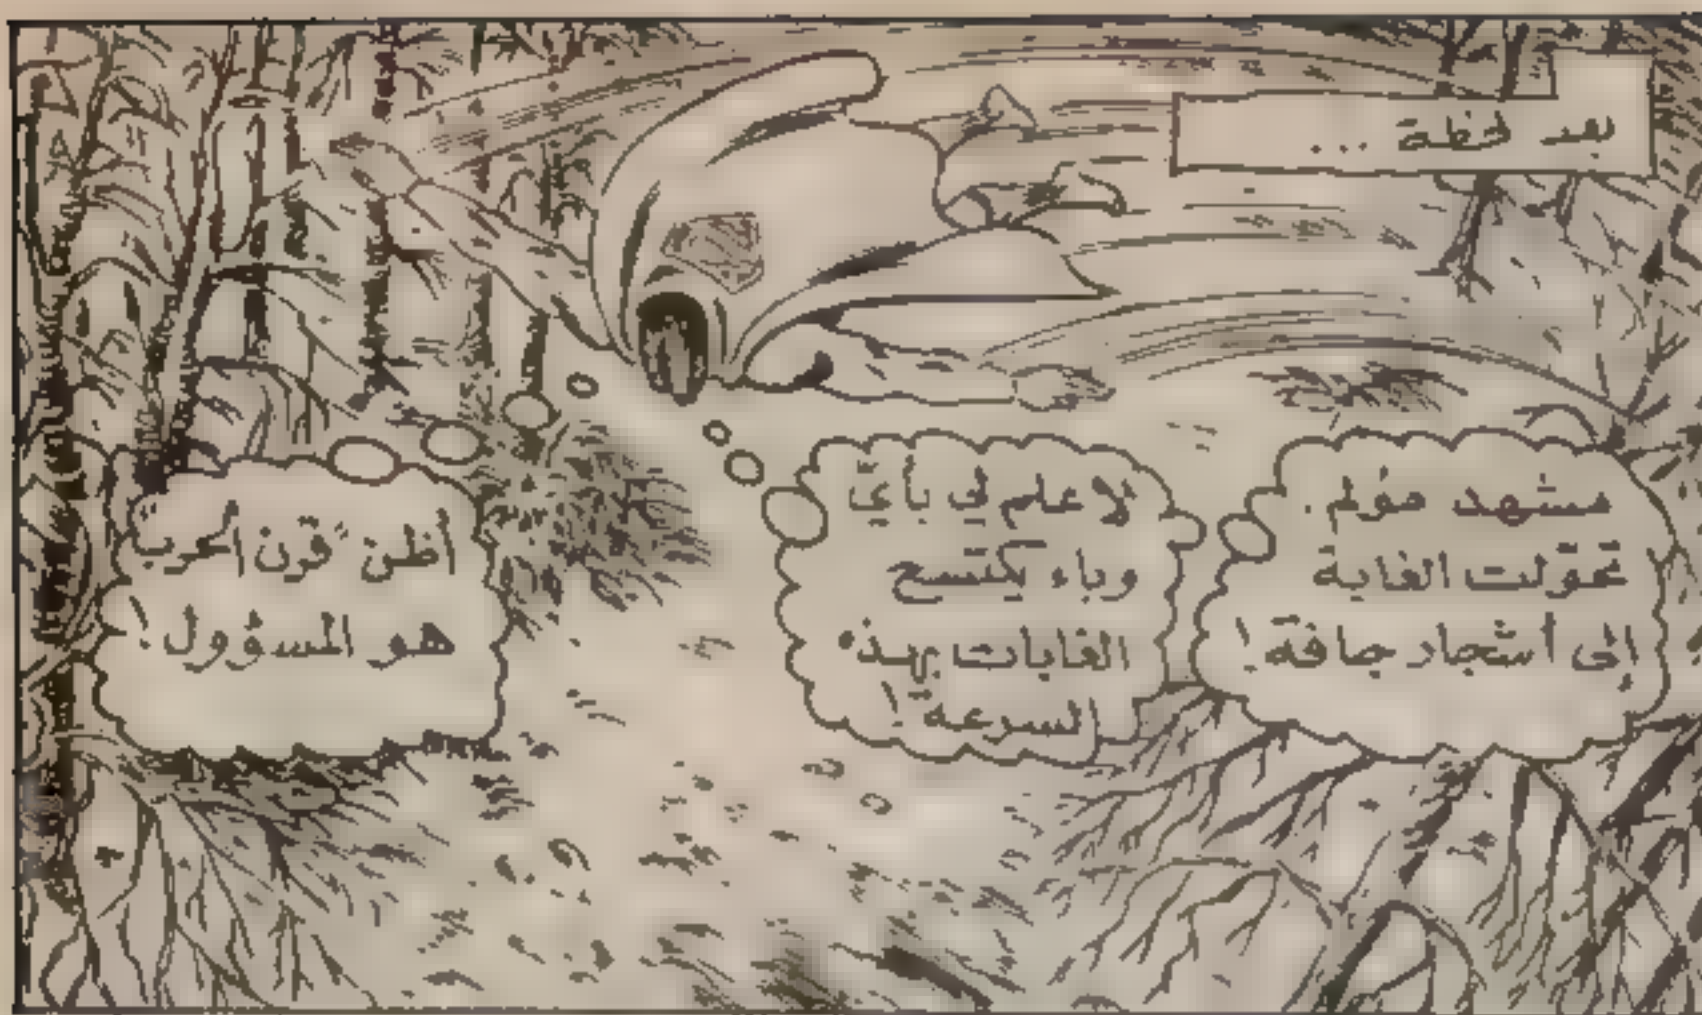 بعد لحظة ...
مشهد مؤلم.
تحوّلت الغابة
إلى أشجار جافة!
لا علم لي بأيّ
وباء يكتسح
الغابات بهذه
السرعة!
أظن "قرن الحرب"
هو المسؤول!